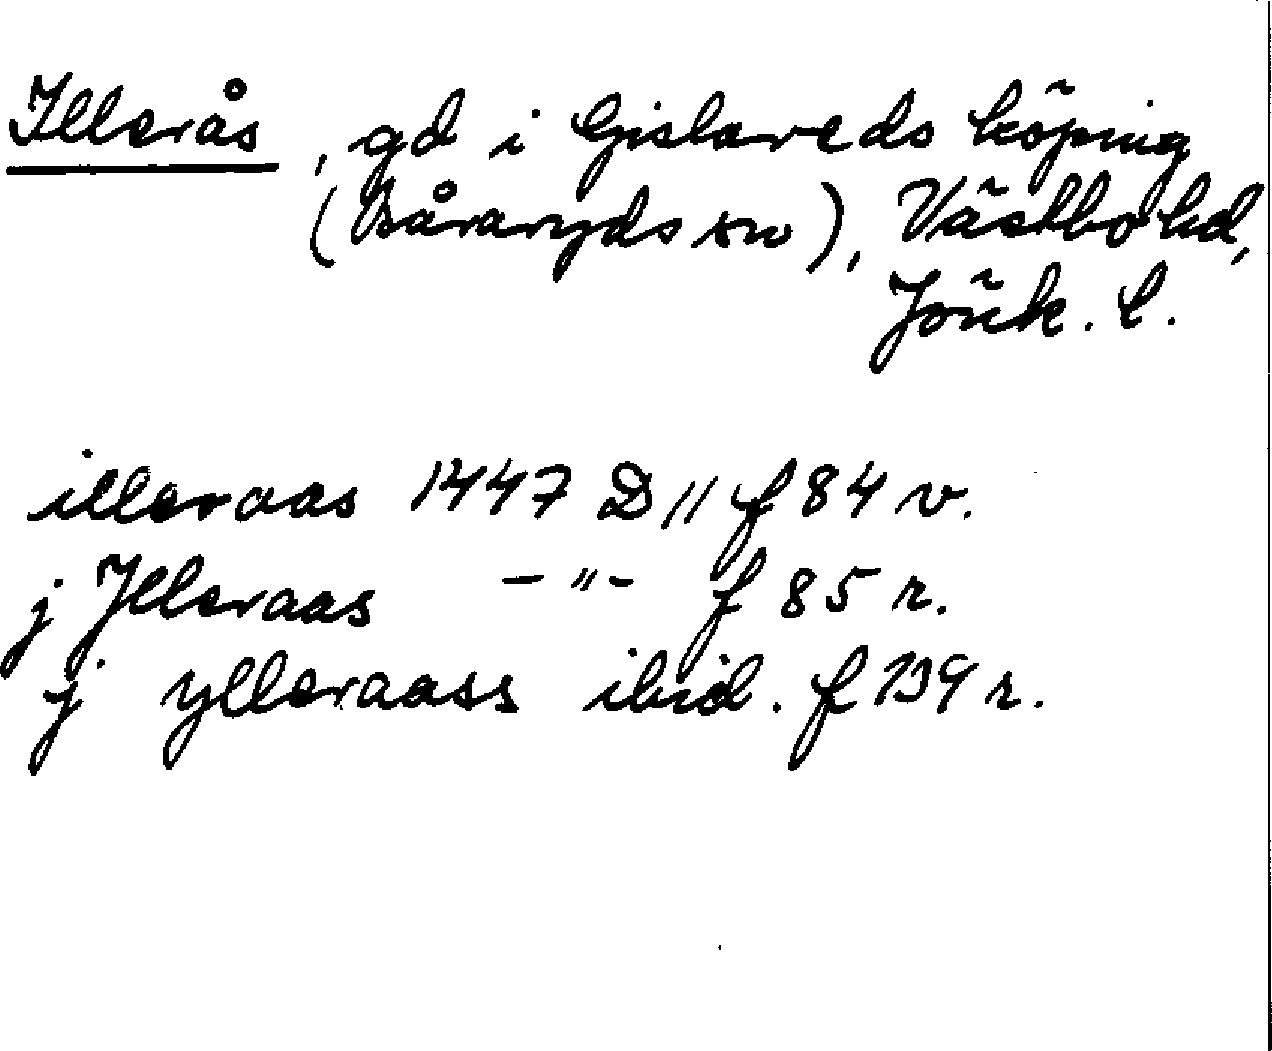 Illerås, gd i Gislaveds köping
(Båraryds sn), Västbo hd,
Jönk. l.
illeraas 1447 D 11 f 84 v.
j Jlleraas -"- f 85 r.
j ylleraass ibid. f 139 r.